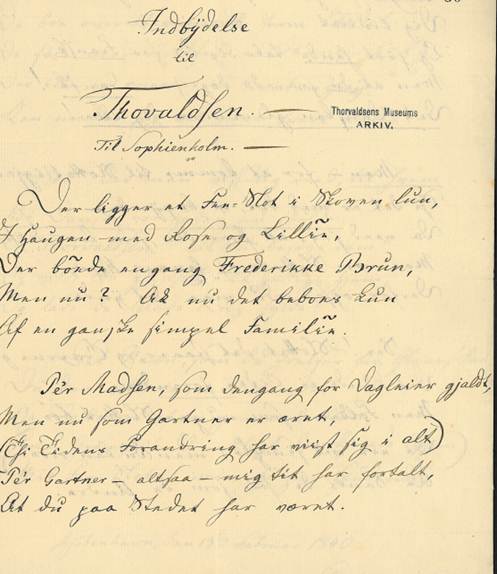 Indbÿdelse
til
Thovaldsen. —
Thorvaldsens Museums
ARKIV.
Til Sophienholm. —
Der ligger et Fee-Slot i Skoven lun,
I Haugen med Rose og Lillie,
Der böede engang Frederikke Brun,
Men nu? Ak nu det beboes kun
Af en ganske simpel Familie.
Pér Madsen, som dengang for Dagleier gjaldt,
Men nu som Gartner er æret,
(Thi Tidens Forandring har viist sig i alt)
Pér Gartner – altsaa – mig tit har fortalt,
At du paa Stedet har været.